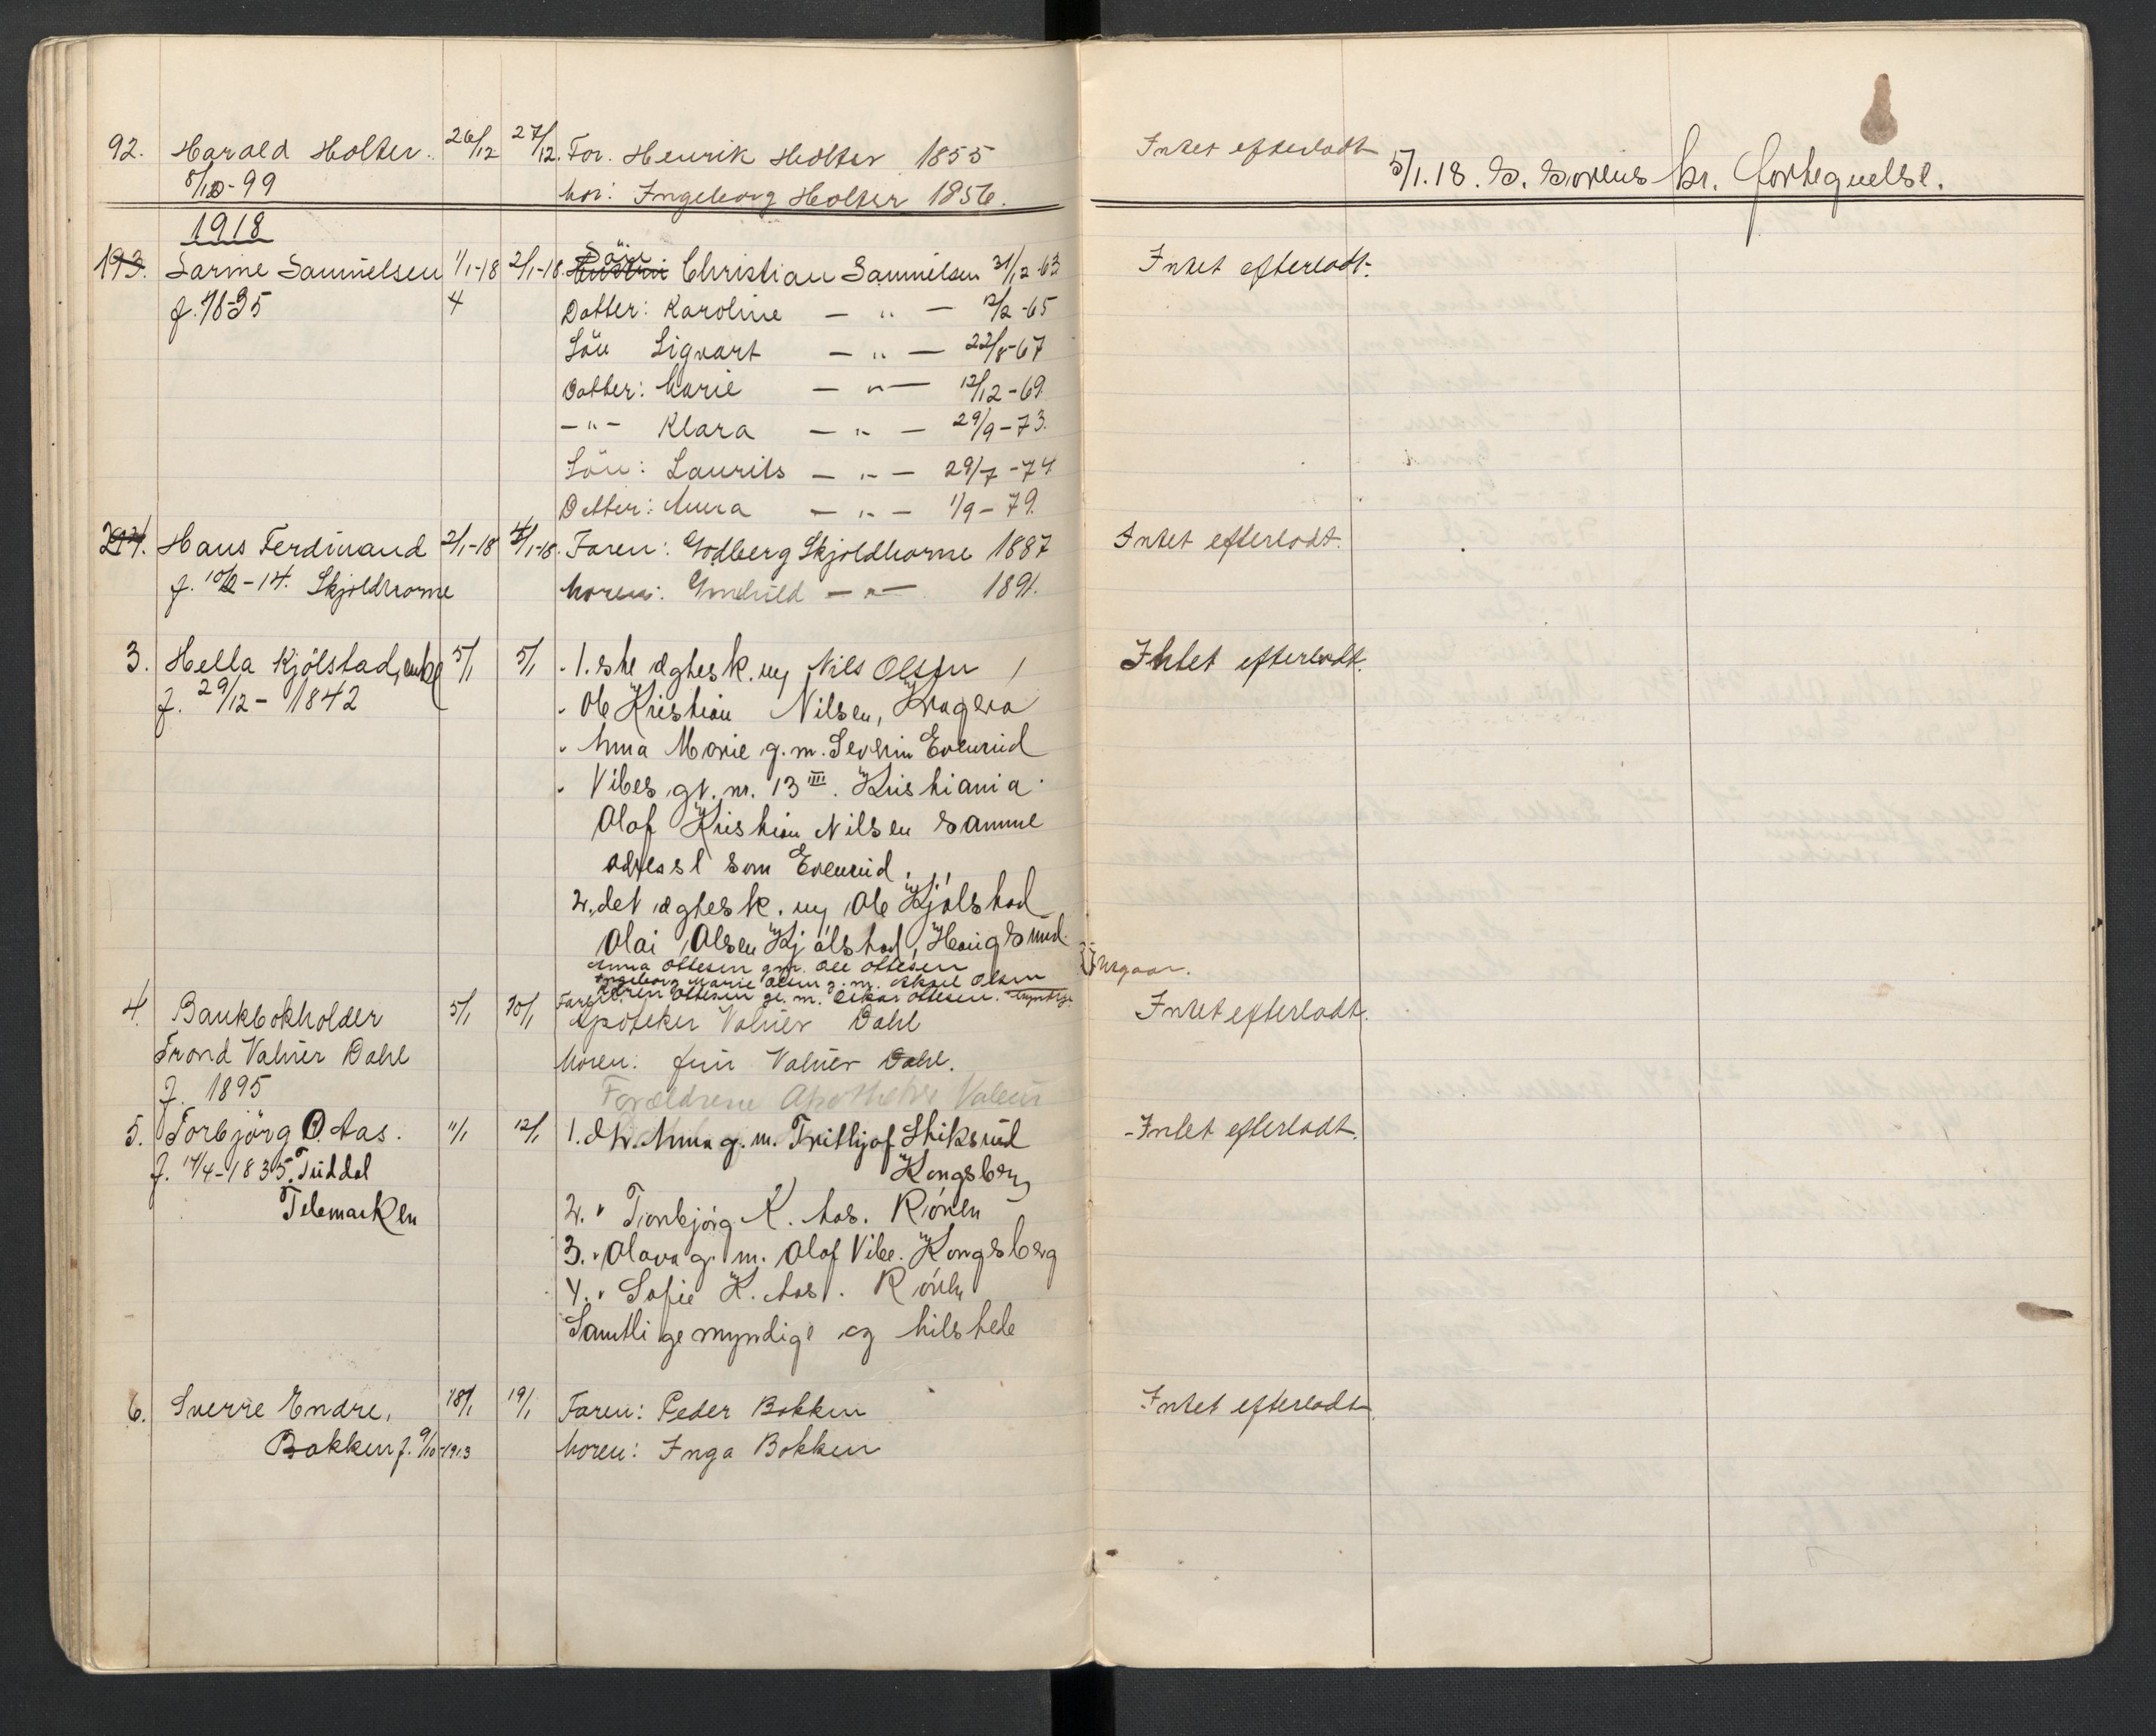 92. Harald Holter. 26/12 27/12. Far. Henrik Holter 1855 Intet efterladt
8/10-99 Mor: Ingeborg Holter 1856. 5/1.18. fortegnelse.
1918
1. Larine Samuelsen 1/1-18 2/1-18. Sön Christian Samuelsen 31/12-63 Intet efterladt.
f. 1835 4 Datter: Karoline — " — 12/2-65
Sön Sigvart — " — 22/8-67
Datter: Marie — " — 12/12-69
-"- Klara — " — 29/9-73.
Sön: Laurits — " — 29/7-74
Datter: Anna — " — 1/9-79.
2. Hans Ferdinand 2/1-18 4/1-18. Faren: Godberg Skjoldhorne 1887 Intet efterladt.
f. 10/2-14. Skjoldhorne Moren: Gunhild — " — 1891.
3. Hella Kjölstad, enke 5/1 5/1 1. ste ægtesk. m/ Nils Olsen Intet efterladt.
f. 29/12-1842 Ole Kristian Nilsen, Kragerø
Anna Marie g. m. Severin Evenrud
Vibes gt. nr. 13 IIII. Kristiania
Olaf Kristian Nilsen samme
adresse som Evenrud.
2. det ægtesk. m/ Ole Kjölstad
Olai Olsen Kjölstad, Hougsund
Anna Ottesen gm. Ole Ottesen
Ingeborg Marie Olsen g. m. Aksel Olsen
Karen Ottesen g. m. Oskar Ottesen. myndige.
4. Bankbokholder 5/1 10/1 Faren: Apoteker Valeur Dahl Intet efterladt.
Trond Valeur Dahl Moren: fru Valeur Dahl.
f. 1895 Forældrene Apotheker Valeur
5. Torbjörg O. Aas. 11/1 12/1 1. Dtr. Anna g. m. Trithjof Stiksrud -Intet efterladt.
f. 14/4-1835. Tuddal Kongsberg
Telemarken 2. " Tonbjörg K. Aas.
3. " Olava g. m. Olaf Vibe. Kongsberg
4. " Sofie K. Aas.
Samtlige myndige og tilstede
6. Sverre Endre, 18/1 19/1 Faren: Peder Bakken Intet efterladt.
Bakken f. 9/10-1913 Moren: Inga Bakken